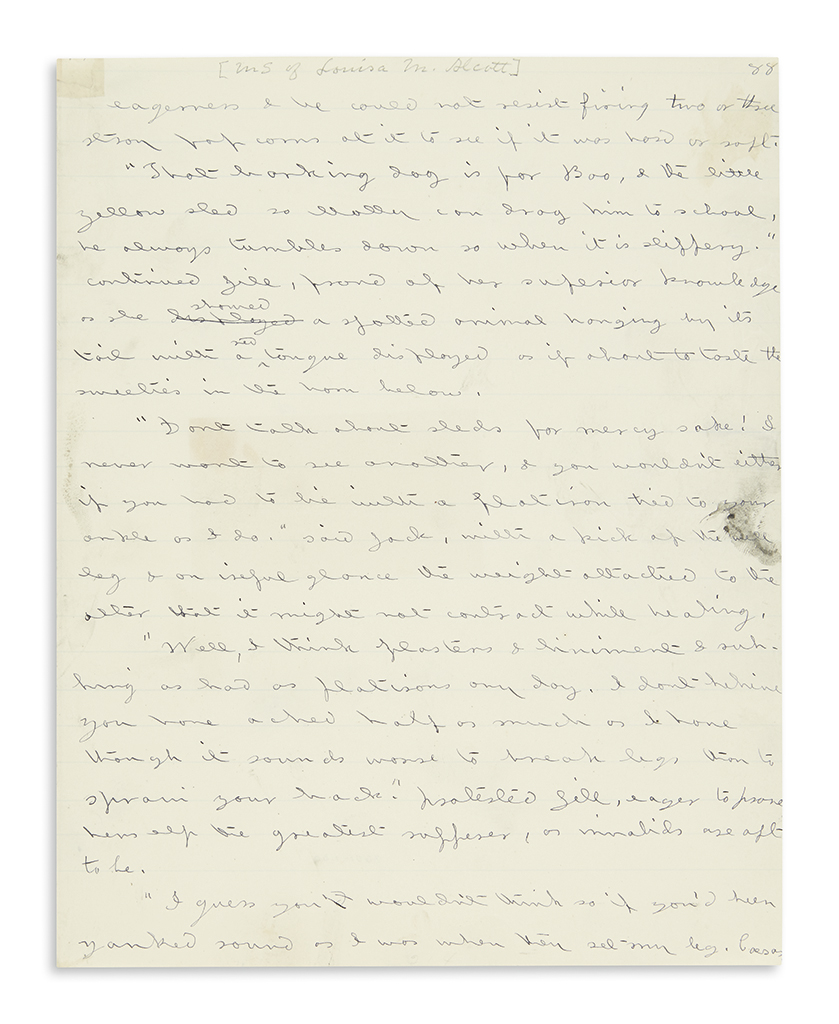 [MS of Louisa M. Alcott]
88
eagerness & he could not resist firing two or three
stray pop corns at it to see if it was hard or soft.
"That barking dog is for Boo, & the little
yellow sled so Molly can drag him to school,
he always tumbles down so when it is slippery."
continued Jill, proud of her superior knowledge
showed
as she displayed a spotted animal hanging by its
red
tail with a ^ tongue displayed as if about to taste the
sweeties in the horn below.
"Dont talk about sleds for mercy sake! I
never want to see another, & you wouldn't either
if you had to lie with a flatiron tied to your
ankle as I do." said Jack, with a kick of the well
leg & an ireful glance the weight attached to the
other that it might not contract while healing.
"Well, I think plasters & liniment & rub-
bing as bad as flatirons any day. I dont believe
you have ached half as much as I have
though it sounds worse to break legs than to
sprain your back." protested Jill, eager to prove
herself the greatest sufferer, as invalids are apt
to be.
"I guess you wouldn't think so if you'd been
yanked round as I was when they set my leg. Caesar